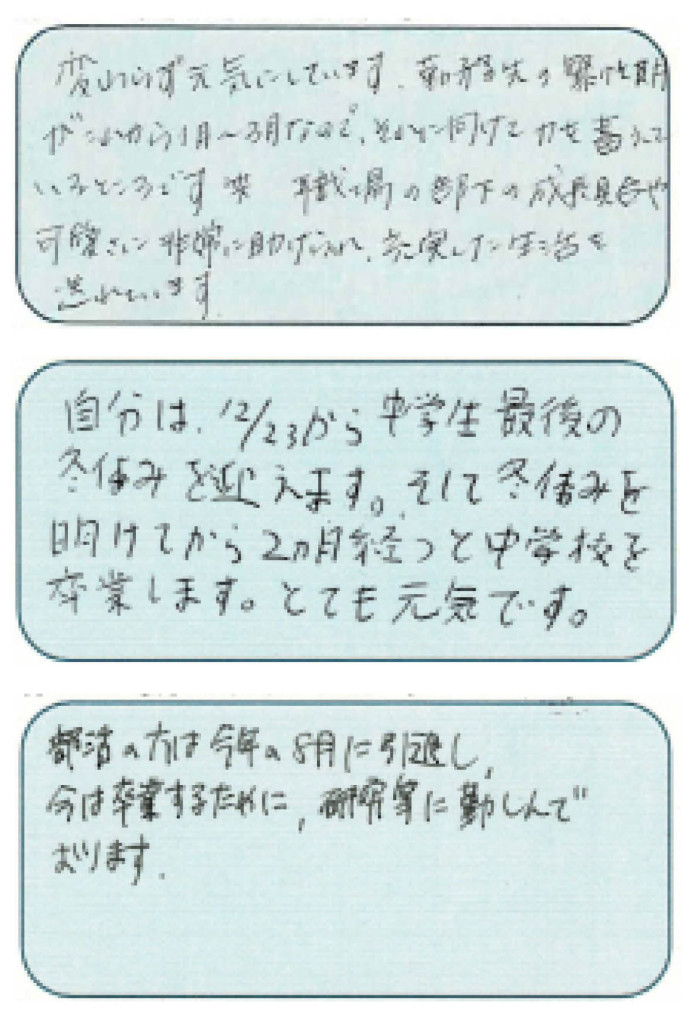 変わらず元気にしています。勤務先の繁忙期
がこれから1月〜3月なので、それに向けて力を蓄えて
いるところです 職場の部下の成長具合や
可愛さに非常に助けられ、充実した生活を
送れています。
自分は、12/23から中学生最後の
冬休みを迎えます。そして冬休みを
明けてから2ヵ月経つと中学校を
卒業します。とても元気です。
部活の方は今年の8月に引退し、
今は卒業するために、研究等に勤しんで
おります。